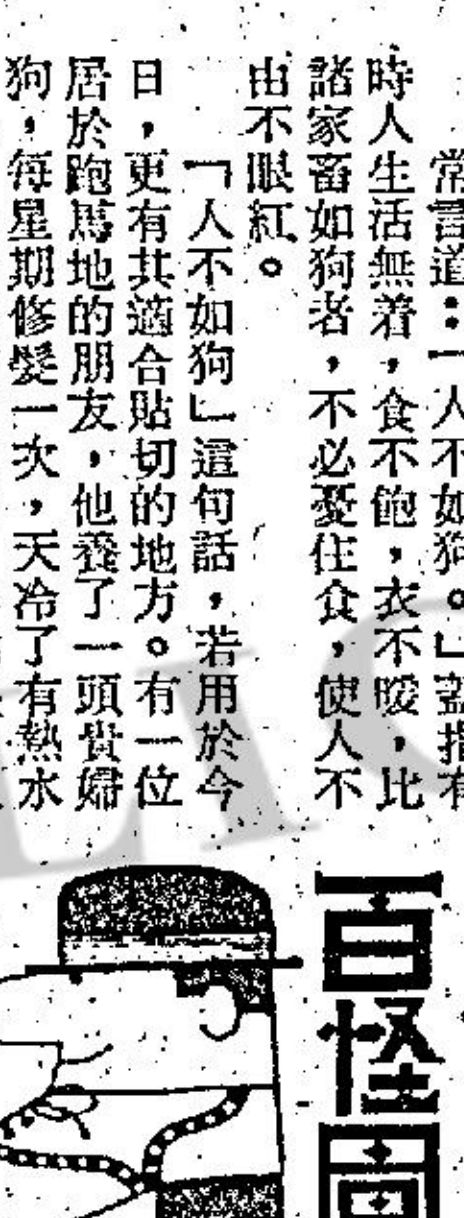 常言道：「人不如狗。」蓋指有
時人生活無着，食不飽，衣不暖，比
諸家畜如狗者，不必憂住食，使人不
由不眼紅。
「人不如狗」這句話，若用於今
日，更有其適合貼切的地方。有一位
居於跑馬地的朋友，他養了一頭貴婦
狗，每星期修髮一次，天冷了有熱水
百怪圖